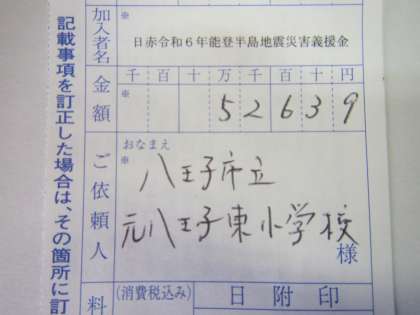 加入者名
※
日赤令和6年能登半島地震災害義援金
金額
千百十万千百十円
※
52639
ご依頼人
おなまえ
※
八王子市立
元八王子東小学校
様
料
(消費税込み)
日附印
記載事項を訂正した場合は、その箇所に訂